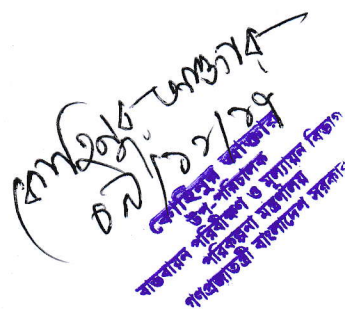 কোহিনুর আক্তার
০৯/১২/১৭
কোহিনুর আক্তার
উপ পরিচালক
বাস্তবায়ন পরিবীক্ষণ ও মূল্যায়ন বিভাগ
পরিকল্পনা মন্ত্রণালয়
গণপ্রজাতন্ত্রী বাংলাদেশ সরকার